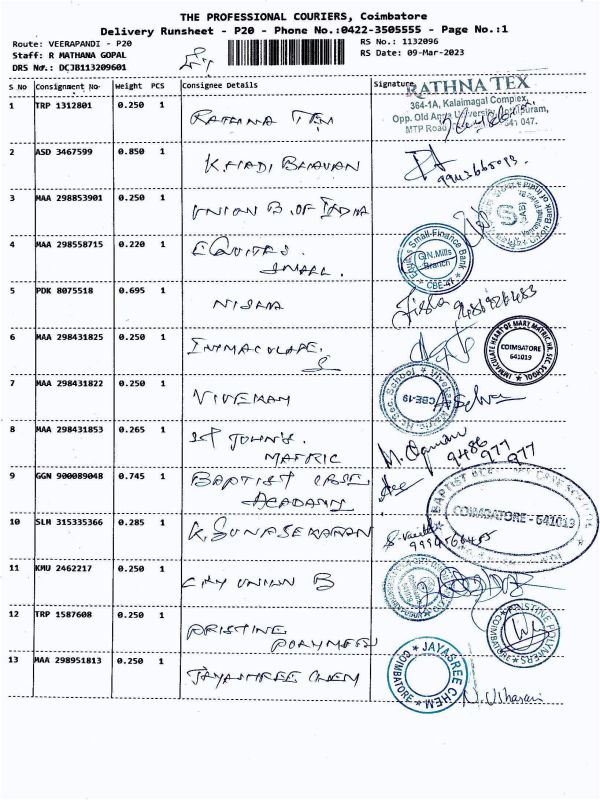 THE PROFESSIONAL COURIERS, Coimbatore
Delivery Runsheet - P20 - Phone No.:0422-3505555 - Page No.:1
Route: VEERAPANDI - P20
RS No.: 1132096
Staff: R MATHANA GOPAL
RS Date: 09-Mar-2023
DRS No.: DCJB113209601
S No Consignment No Weight PCS Consignee Details Signature
RATHNA TEX
364-1A, Kalaimagal Complex,
1 TRP 1312801 0.250 1 RATHNA TEX
MTP Road 641 047.
2 ASD 3467599 0.850 1 KHADI BHAVAN
3 MAA 298853901 0.250 1 UNION B. OF INDIA
4 MAA 298558715 0.220 1 EQUITAS
SMALL.
Equitas Small Finance Bank
G.N.Mills
Branch
CBE-47
5 PDK 8075518 0.695 1 NISHA
Nisha
6 MAA 298431825 0.250 1 IMMACULATE.
IMMACULATE HEART OF MARY MATRIC.HR.SEC.SCHOOL
COIMBATORE
641019
7 MAA 298431822 0.250 1 VIVEKAM
CBE-19
8 MAA 298431853 0.265 1 ST JOHN'S.
MATRIC
9486
977
977
9 GGN 900089048 0.745 1 BAPTIST
ACADAMY
COIMBATORE - 641019
10 SLM 315335366 0.285 1 K. GUNASEKARAN
11 KMU 2462217 0.250 1 CITY UNION B
12 TRP 1587608 0.250 1 PRISTINE
POLYMERS
13 MAA 298951813 0.250 1 JAYASHREE CHEM
JAYASREE CHEM
COIMBATORE